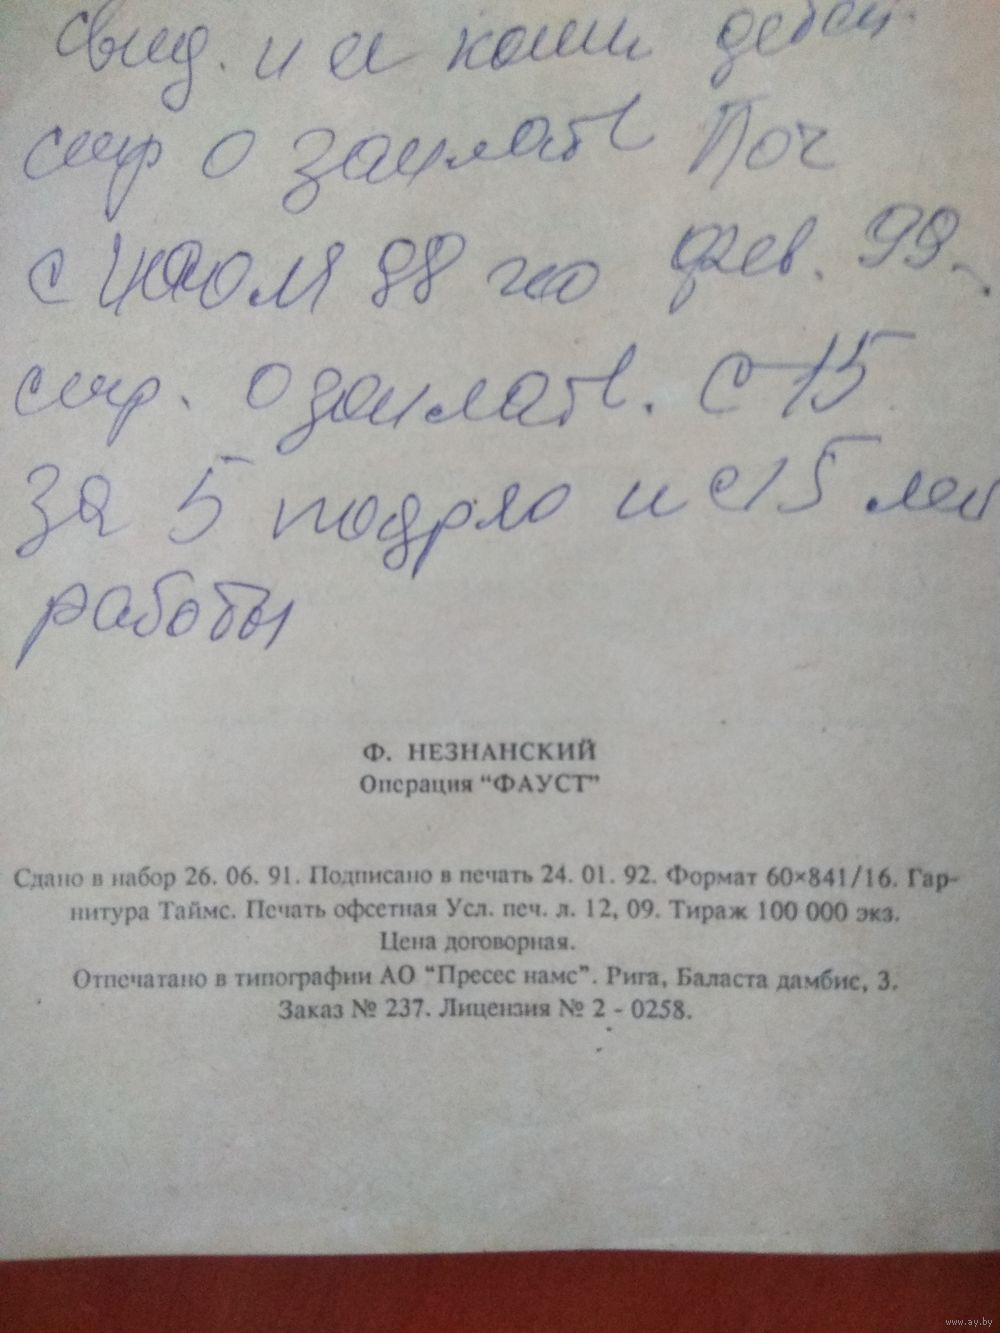 свид. и и копии
спр о зарплате Поч
с июля 98 по фев. 99.
спр. о зарплате. с 15
за 5 подряд и с 15 лет
работы
Ф. НЕЗНАНСКИЙ
Операция "ФАУСТ"
Сдано в набор 26. 06. 91. Подписано в печать 24. 01. 92. Формат 60×841/16. Гар-
нитура Таймс. Печать офсетная Усл. печ. л. 12, 09. Тираж 100 000 экз.
Цена договорная.
Отпечатано в типографии АО "Пресес намс". Рига, Баласта дамбис, 3.
Заказ № 237. Лицензия № 2 - 0258.
www.ay.by